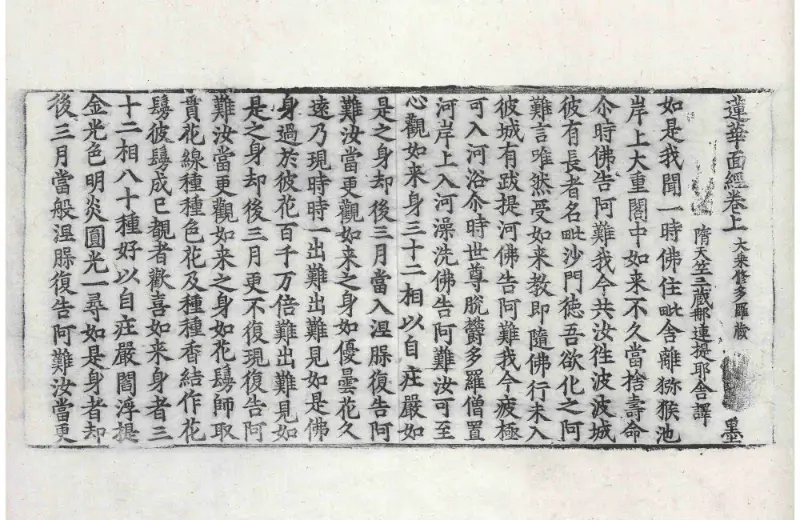 蓮華面經卷上 大乘修多羅藏 墨
隋天竺三藏那連提耶舍譯
如是我聞一時佛住毗舍離猕猴池
岸上大重閣中如来不久當捨壽命
尒時佛告阿難我今共汝徃波波城
彼有長者名毗沙門德吾欲化之阿
難言唯然受如来教即隨佛行未入
彼城有跋提河佛告阿難我今疲極
可入河浴尒時世尊脫欝多羅僧置
河岸上入河澡洗佛告阿難汝可至
心觀如来身三十二相以自庄嚴如
是之身却後三月當入涅槃復告阿
難汝當更觀如来之身如優曇花久
遠乃現時時一出難出難見如是佛
身過於彼花百千万倍難出難見如
是之身却後三月更不復現復告阿
難汝當更觀如来之身如花鬘師取
貫花線種種色花及種種香結作花
鬘彼鬘成已覩者歡喜如来身者三
十二相八十種好以自庄嚴閻浮提
金光色明炎圓光一尋如是身者却
後三月當般涅槃復告阿難汝當更